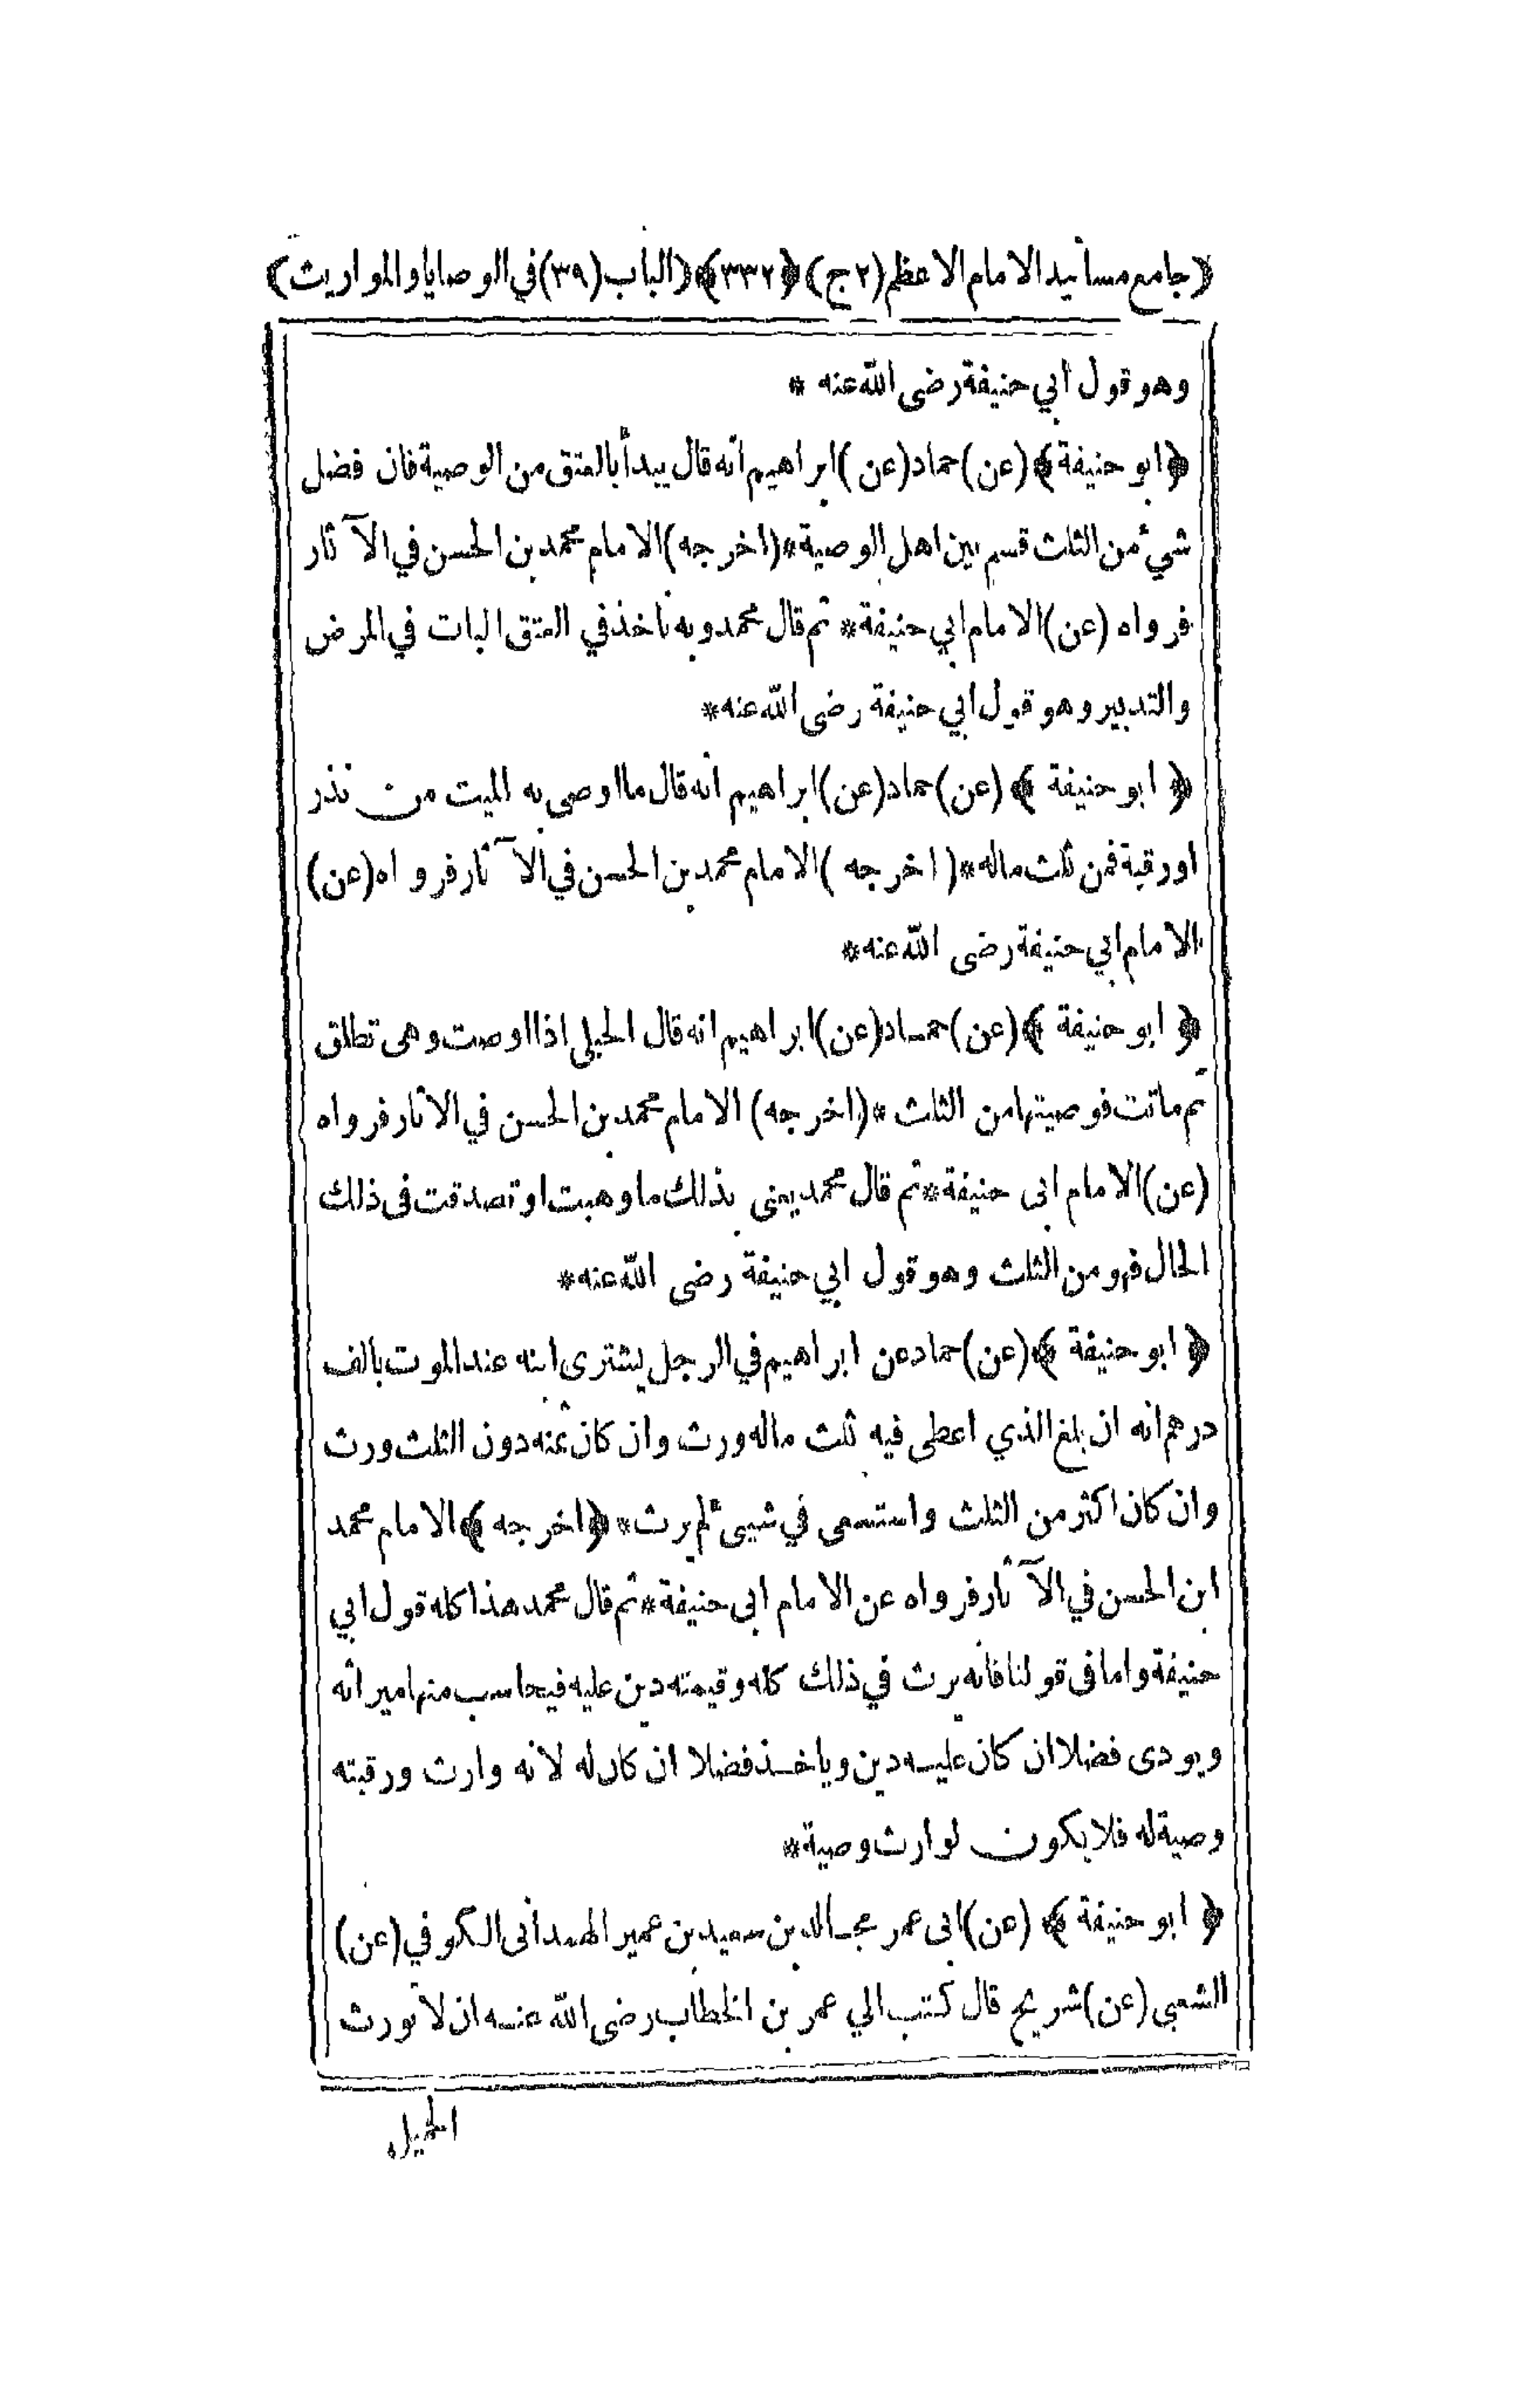 ﴿جامع مسانيد الامام الاعظم (ج٢)﴾ ﴿٣٣٢﴾ ﴿الباب (٣٩) في الوصايا والمواريث﴾
وهو قول أبي حنيفة رضى الله عنه *
﴿ابو حنيفة﴾ (عن) حماد (عن) ابراهيم انه قال يبدأ بالعتق من الوصية فان فضل
شيء من الثلث قسم بين اهل الوصية * (اخرجه) الامام محمد بن الحسن في الآثار
فرواه (عن) الامام ابي حنيفة * ثم قال محمد وبه ناخذ في العتق البات في المرض
والتدبير وهو قول ابي حنيفة رضى الله عنه *
﴿ابو حنيفة﴾ (عن) حماد (عن) ابراهيم انه قال ما اوصى به الميت من نذر
او رقبة فمن ثلث ماله * (اخرجه) الامام محمد بن الحسن في الآثار فرواه (عن)
الامام ابي حنيفة رضى الله عنه *
﴿ابو حنيفة﴾ (عن) حماد (عن) ابراهيم انه قال الحبلى اذا اوصت وهى تطلق
ثم ماتت فوصيتها من الثلث * (اخرجه) الامام محمد بن الحسن في الاثار فرواه
(عن) الامام ابى حنيفة * ثم قال محمد يعنى بذلك ما وهبت او تصدقت فى ذلك
الحال فهو من الثلث وهو قول ابي حنيفة رضى الله عنه *
﴿ابو حنيفة﴾ (عن) حماد عن ابراهيم في الرجل يشترى ابنه عند الموت بالف
درهم انه ان بلغ الذي اعطى فيه ثلث ماله ورث وان كان ثمنه دون الثلث ورث
وان كان اكثر من الثلث واستسعى في شيئ لم يرث * ﴿اخرجه﴾ الامام محمد
ابن الحسن في الآثار فرواه عن الامام ابى حنيفة * ثم قال محمد هذا كله قول ابي
حنيفة واما فى قولنا فانه يرث في ذلك كله وقيمته دين عليه فيحاسب منها ميراثه
ويودى فضلا ان كان عليه دين وياخذ فضلا ان كان له لانه وارث ورقبته
وصية له فلا يكون لوارث وصية *
﴿ابو حنيفة﴾ (عن) ابى عمر مجالد بن سعيد بن عمير الهمدانى الكوفي (عن)
الشعبي (عن) شريح قال كتب الي عمر بن الخطاب رضى الله عنه ان لا تورث
الحميل